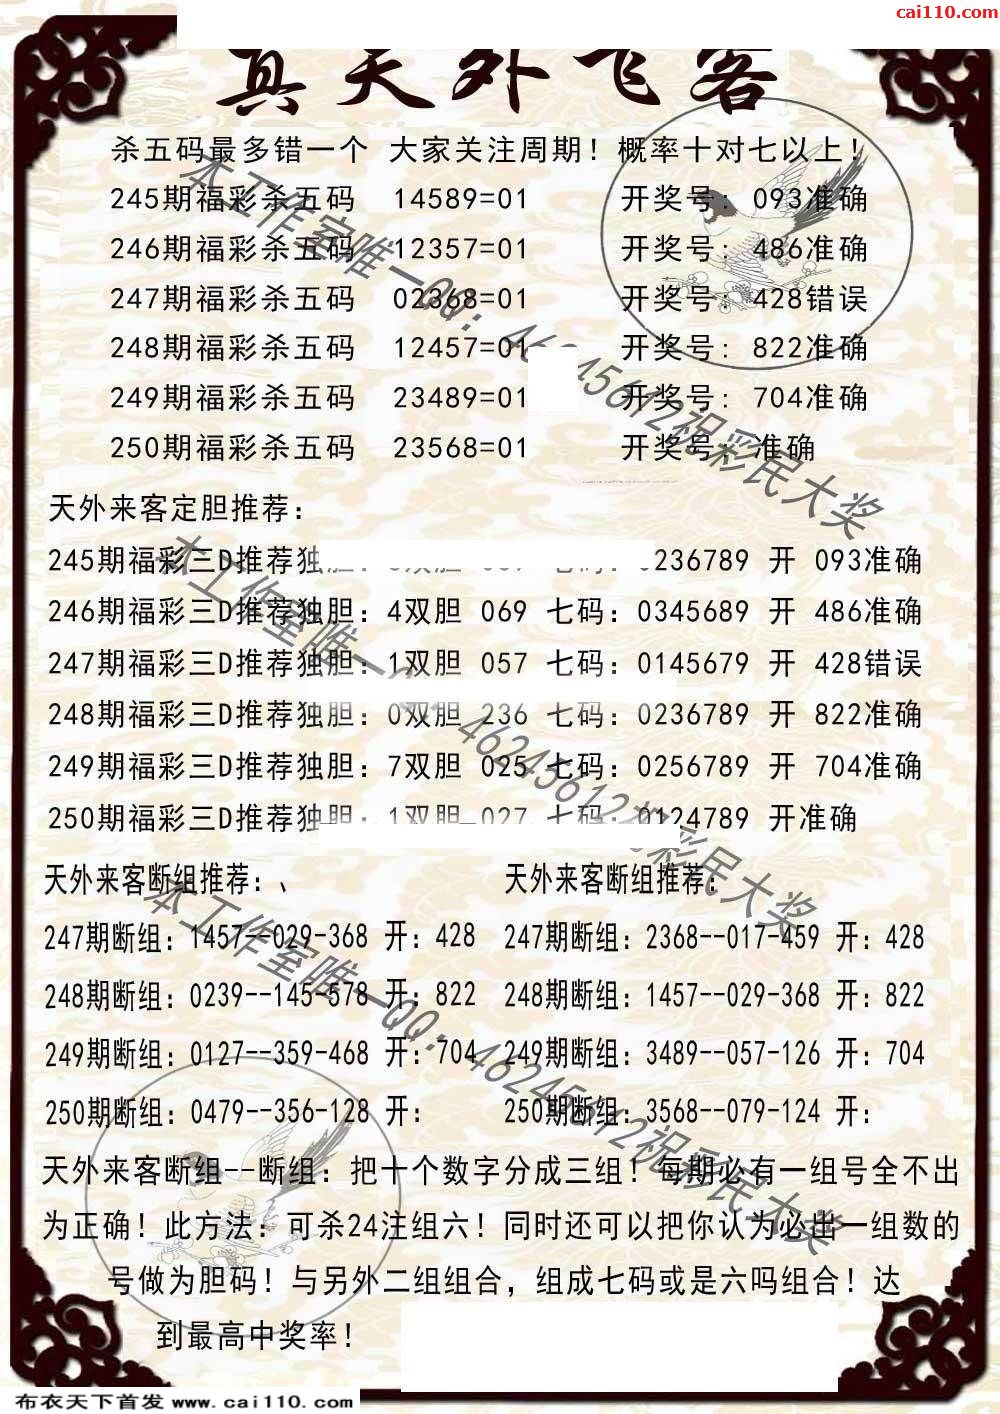 cai110.com
真天外飞客
杀五码最多错一个 大家关注周期！概率十对七以上！
245期福彩杀五码 14589=01 开奖号：093准确
246期福彩杀五码 12357=01 开奖号：486准确
247期福彩杀五码 02368=01 开奖号：428错误
248期福彩杀五码 12457=01 开奖号：822准确
249期福彩杀五码 23489=01 开奖号：704准确
250期福彩杀五码 23568=01 开奖号：准确
天外来客定胆推荐：
245期福彩三D推荐独胆： 236789 开 093准确
246期福彩三D推荐独胆：4双胆 069 七码：0345689 开 486准确
247期福彩三D推荐独胆：1双胆 057 七码：0145679 开 428错误
248期福彩三D推荐独胆：0双胆 236 七码：0236789 开 822准确
249期福彩三D推荐独胆：7双胆 025 七码：0256789 开 704准确
250期福彩三D推荐独胆：1双胆 027 七码：0124789 开准确
天外来客断组推荐：、 天外来客断组推荐：
247期断组：1457--029-368 开：428 247期断组：2368--017-459 开：428
248期断组：0239--145-678 开：822 248期断组：1457--029-368 开：822
249期断组：0127--359-468 开：704 249期断组：3489--057-126 开：704
250期断组：0479--356-128 开： 250期断组：3568--079-124 开：
天外来客断组--断组：把十个数字分成三组！每期必有一组号全不出
为正确！此方法：可杀24注组六！同时还可以把你认为必出一组数的
号做为胆码！与另外二组组合，组成七码或是六吗组合！达
到最高中奖率！
本工作室唯一QQ：46245612祝彩民大奖
本工作室唯一QQ：46245612祝彩民大奖
本工作室唯一QQ：46245612祝彩民大奖
布衣天下首发 www.cai110.com